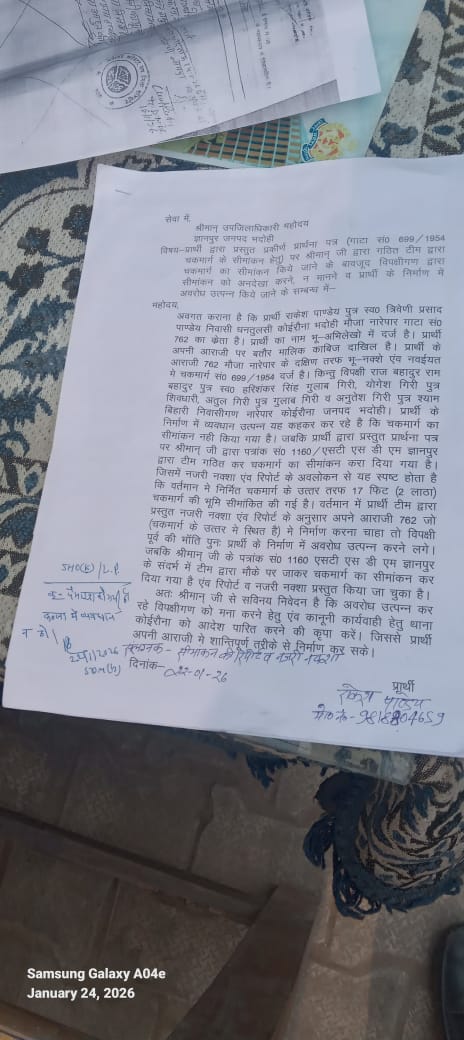 सेवा में,
श्रीमान् उपजिलाधिकारी महोदय
ज्ञानपुर जनपद भदोही
विषय–प्रार्थी द्वारा प्रस्तुत प्रकीर्ण प्रार्थना पत्र (गाटा सं0 699/1954
चकमार्ग के सीमांकन हेतु) पर श्रीमान् जी द्वारा गठित टीम द्वारा
चकमार्ग का सीमांकन किये जाने के बावजूद विपक्षीगण द्वारा
सीमांकन को अनदेखा करने, न मानने व प्रार्थी के निर्माण में
अवरोध उत्पन्न किये जाने के सम्बन्ध में–
महोदय,
अवगत कराना है कि प्रार्थी राकेश पाण्डेय पुत्र स्व0 त्रिवेणी प्रसाद
पाण्डेय निवासी घनतुलसी कोईरौना भदोही मौजा नारेपार गाटा सं0
762 का क्रेता है। प्रार्थी का नाम भू–अभिलेखो में दर्ज है। प्रार्थी के
अपनी आराजी पर बतौर मालिक काबिज दाखिल है। प्रार्थी के
आराजी 762 मौजा नारेपार के दक्षिण तरफ भू–नक्शे एंव नवईयत
मे चकमार्ग सं0 699/1954 दर्ज है। किन्तु विपक्षी राज बहादुर राम
बहादुर पुत्र स्व0 हरिशंकर सिंह गुलाब गिरी, योगेश गिरी पुत्र
शिवधारी, अतुल गिरी पुत्र गुलाब गिरी व अनुतेश गिरी पुत्र श्याम
बिहारी निवासीगण नारेपार कोईरौना जनपद भदोही। प्रार्थी के
निर्माण में व्यवधान उत्पन्न यह कहकर कर रहे है कि चकमार्ग का
सीमांकन नही किया गया है। जबकि प्रार्थी द्वारा प्रस्तुत प्रार्थना पत्र
पर श्रीमान् जी द्वारा पत्रांक सं0 1160/एसटी एस डी एम ज्ञानपुर
द्वारा टीम गठित कर चकमार्ग का सीमांकन करा दिया गया है।
जिसमें नजरी नक्शा एंव रिपोर्ट के अवलोकन से यह स्पष्ट होता है
कि वर्तमान मे निर्मित चकमार्ग के उत्तर तरफ 17 फिट (2 लाठा)
चकमार्ग की भूमि सीमांकित की गई है। वर्तमान में प्रार्थी टीम द्वारा
प्रस्तुत नजरी नक्शा एंव रिपोर्ट के अनुसार अपने आराजी 762 जो
(चकमार्ग के उत्तर मे स्थित है) मे निर्माण करना चाहा तो विपक्षी
पूर्व की भाँति पुनः प्रार्थी के निर्माण में अवरोध उत्पन्न करने लगे।
जबकि श्रीमान् जी के पत्रांक सं0 1160 एसटी एस डी एम ज्ञानपुर
के संदर्भ में टीम द्वारा मौके पर जाकर चकमार्ग का सीमांकन कर
दिया गया है एंव रिपोर्ट व नजरी नक्शा प्रस्तुत किया जा चुका है।
अतः श्रीमान् जी से सविनय निवेदन है कि अवरोध उत्पन्न कर
रहे विपक्षीगण को मना करने हेतु एंव कानूनी कार्यवाही हेतु थाना
कोईरौना को आदेश पारित करने की कृपा करें। जिससे प्रार्थी
अपनी आराजी मे शान्तिपूर्ण तरीके से निर्माण कर सके।
SHO(K)/L.P
में व्यवधान
न हो।
SDM(G)
संलग्नक - सीमांकन की रिपोर्ट व नजरी नक्शा
दिनांक– 22-01-26
प्रार्थी
राकेश पाण्डेय
Samsung Galaxy A04e
January 24, 2026